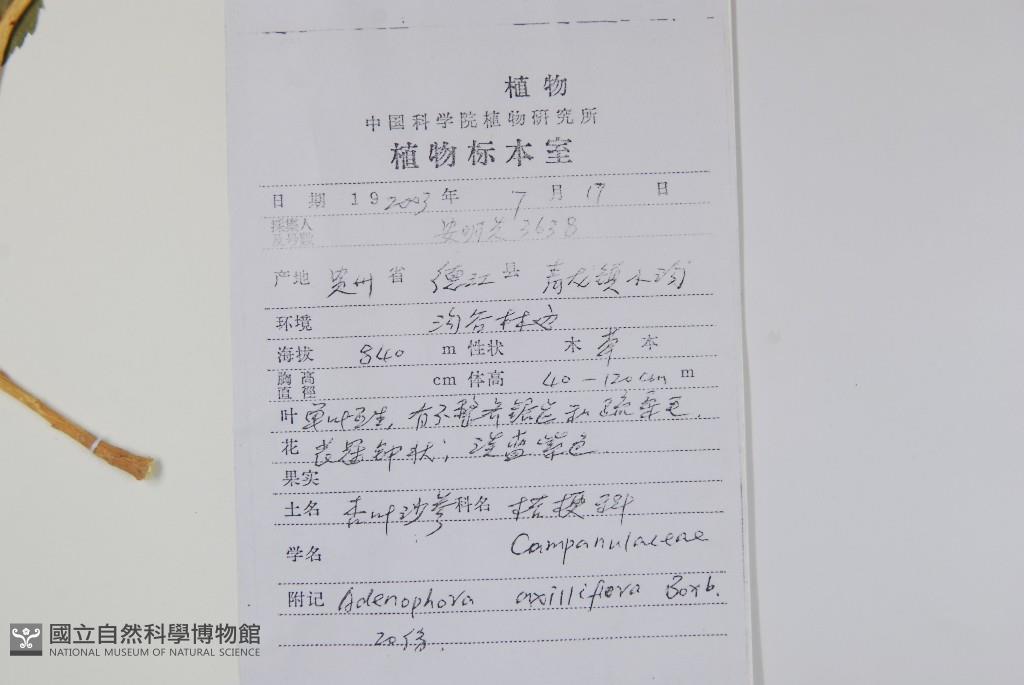 植物
中国科学院植物研究所
植物标本室
日 期 19 2003 年 7 月 17 日
採集人及号数 安明先 3638
产地 贵州 省 德江 县 青龙镇
环境 沟谷林边
海拔 840 m 性状 木 草 本
胸高直徑 cm 体高 40-120cm m
叶 单叶互生, 有不整齐锯齿和疏柔毛.
花 花冠钟状; 淡蓝紫色
果实
土名 杏叶沙参 科名 桔梗科
学名 Campanulaceae
附记 Adenophora axilliflora Borb.
20份.
國立自然科學博物館
NATIONAL MUSEUM OF NATURAL SCIENCE